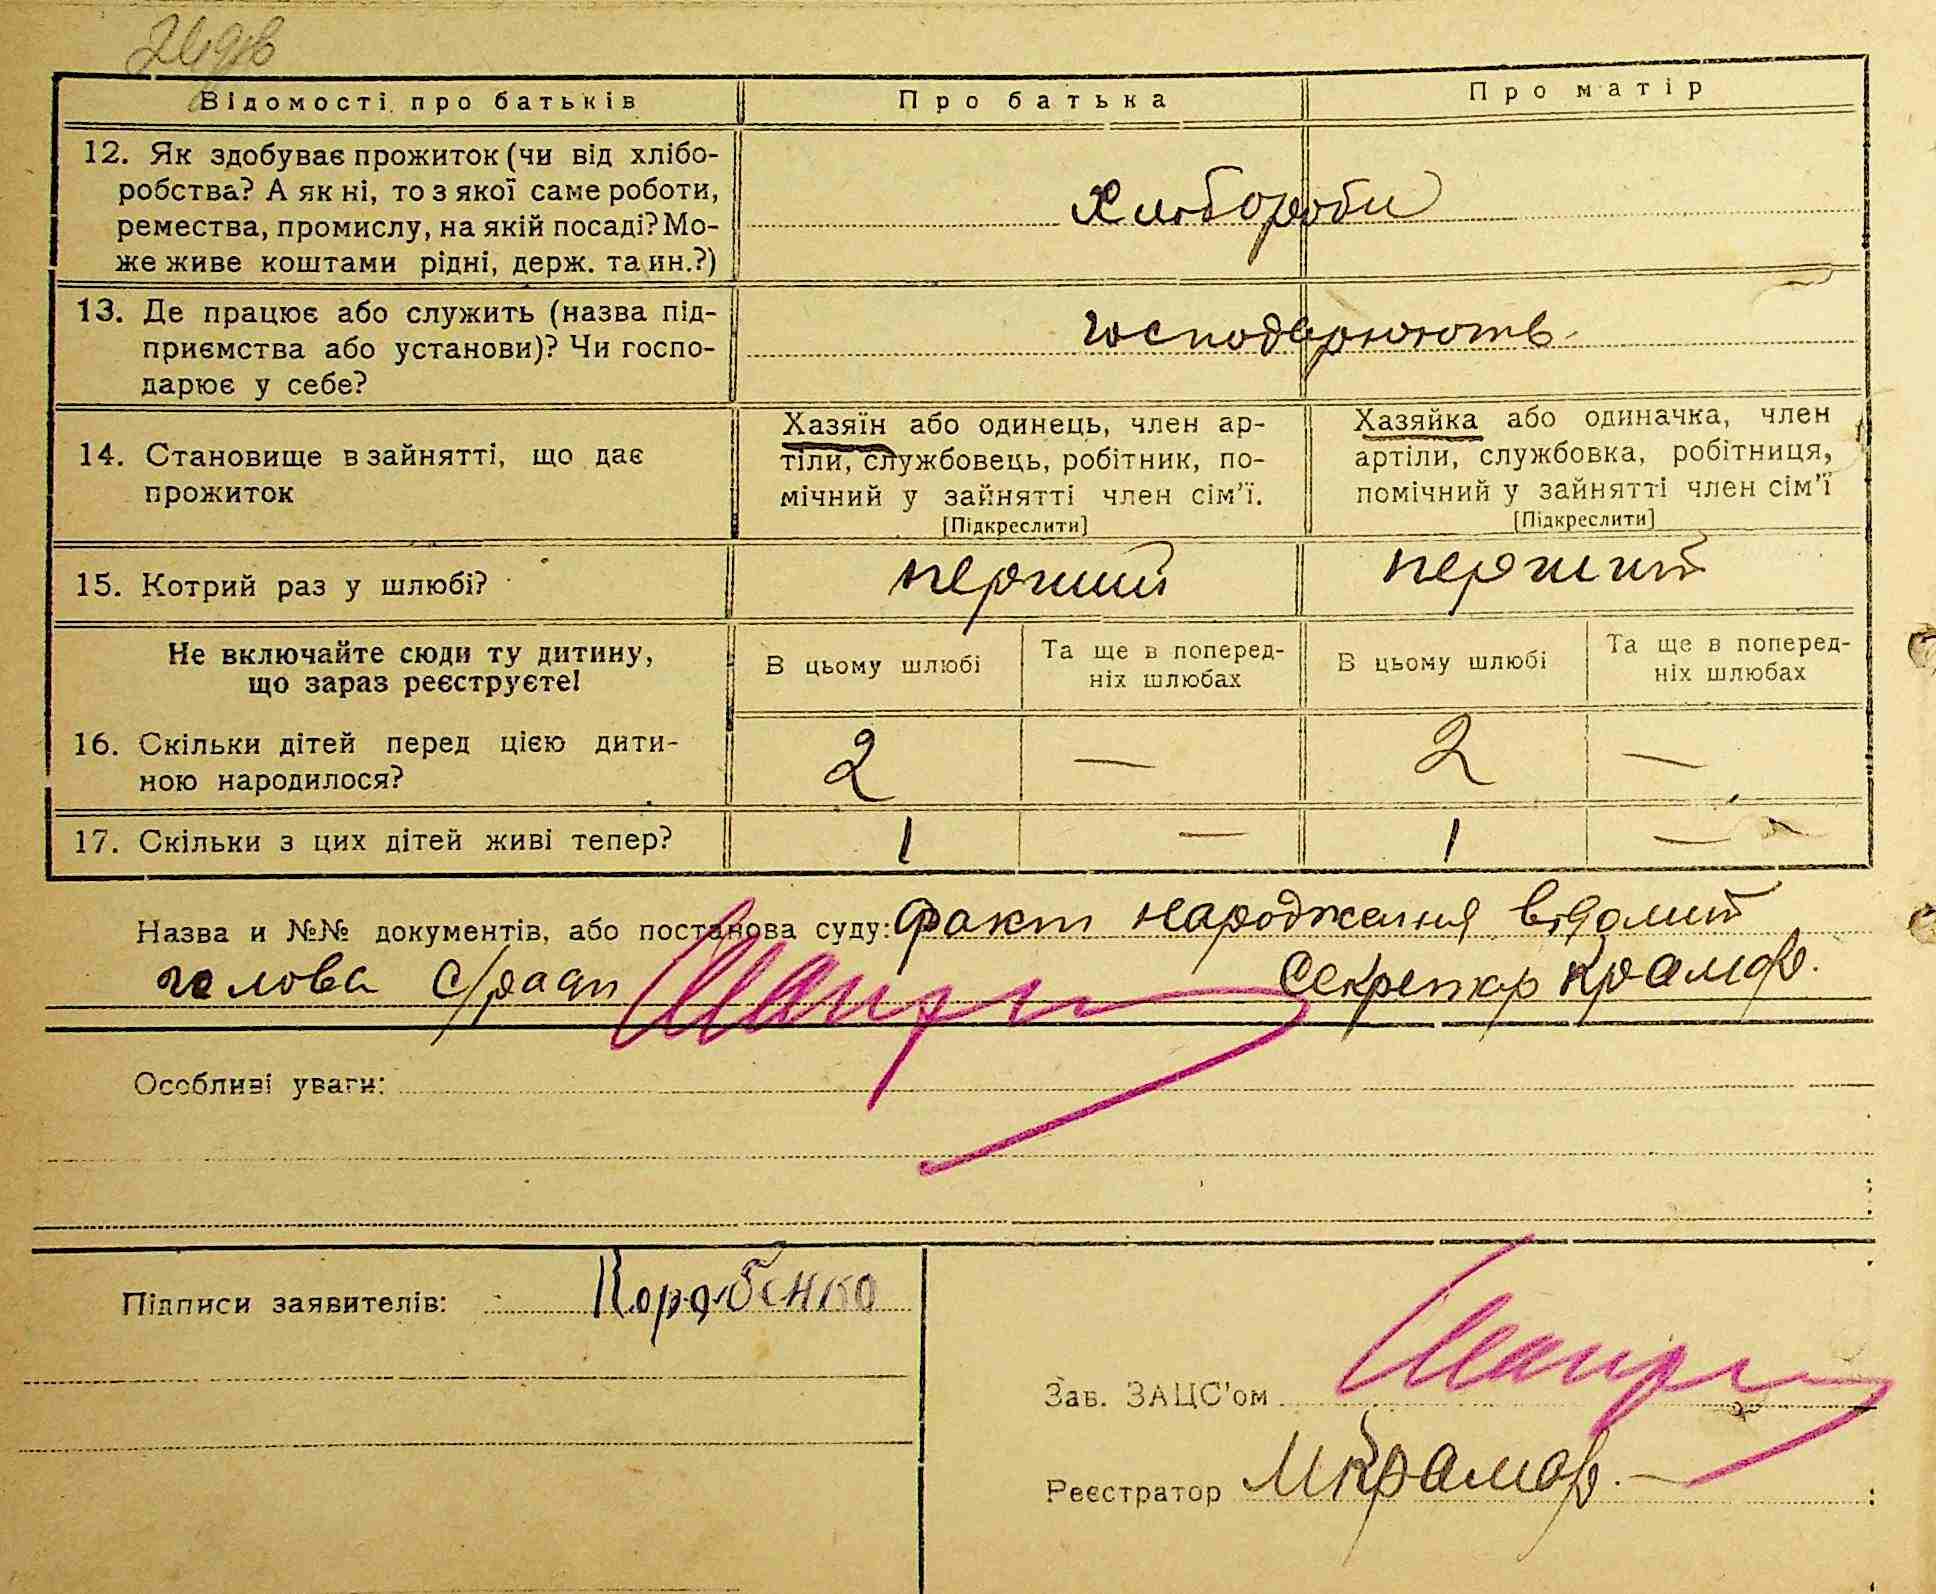 Відомості про батьків Про батька Про матір
12. Як здобуває прожиток (чи від хлібо-
робства? А як ні, то з якої саме роботи,
ремества, промислу, на якій посаді? Мо-
же живе коштами рідні, держ. та ин.?)
Хлібороби
13. Де працює або служить (назва під-
приємства або установи)? Чи госпо-
дарює у себе?
господарюють
14. Становище в зайнятті, що дає
прожиток
Хазяїн або одинець, член ар-
тіли, службовець, робітник, по-
мічний у зайнятті член сім'ї.
[Підкреслити]
Хазяйка або одиначка, член
артіли, службовка, робітниця,
помічний у зайнятті член сім'ї
[Підкреслити]
15. Котрий раз у шлюбі? перший перший
Не включайте сюди ту дитину,
що зараз реєструєте!
В цьому шлюбі
Та ще в поперед-
ніх шлюбах
В цьому шлюбі
Та ще в поперед-
ніх шлюбах
16. Скільки дітей перед цією дити-
ною народилося?
2 — 2 —
17. Скільки з цих дітей живі тепер? 1 — 1 —
Назва и №№ документів, або постанова суду: факт народження відомит
голова с/ради Секретар Крамар.
Особливі уваги:
Підписи заявителів: Корабенко
Зав. ЗАЦС'ом
Реєстратор МКрамар.—